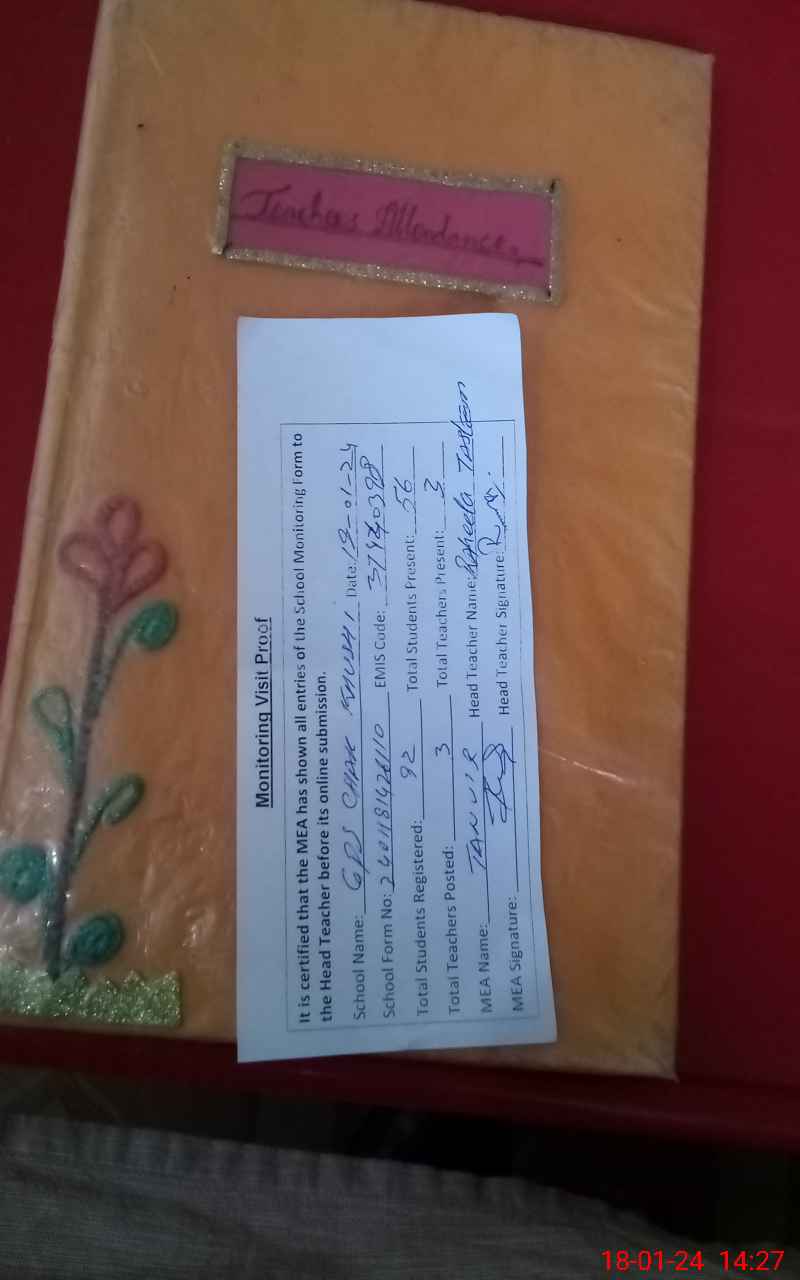 Teachers Attendance
Monitoring Visit Proof
It is certified that the MEA has shown all entries of the School Monitoring Form to
the Head Teacher before its online submission.
School Name: GPS CHAK KHUSHI Date: 19-01-24
School Form No: EMIS Code:
Total Students Registered: 92 Total Students Present: 56
Total Teachers Posted: 3 Total Teachers Present: 3
MEA Name: TANVIR Head Teacher Name: Raheela
MEA Signature: Head Teacher Signature:
18-01-24 14:27